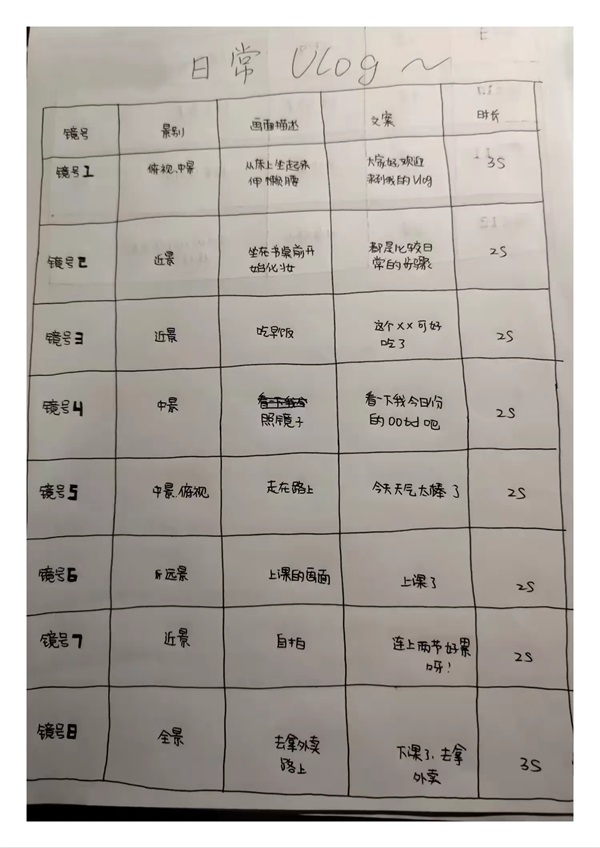 日常 Vlog ~
镜号 景别 画面描述 文案 时长
镜号1 俯视.中景 从床上坐起来 大家好,欢迎 3S
伸懒腰 来到我的Vlog
镜号2 近景 坐在书桌前开 都是比较日 2S
始化妆 常的步骤
镜号3 近景 吃早饭 这个××可好 2S
吃了
镜号4 中景 看一下我今 看一下我今日份 2S
照镜子 的ootd吧
镜号5 中景.俯视 走在路上 今天天气太棒了 2S
镜号6 远景 上课的画面 上课了 2S
镜号7 近景 自拍 连上两节好累 2S
呀!
镜号8 全景 去拿外卖 下课了,去拿 3S
路上 外卖